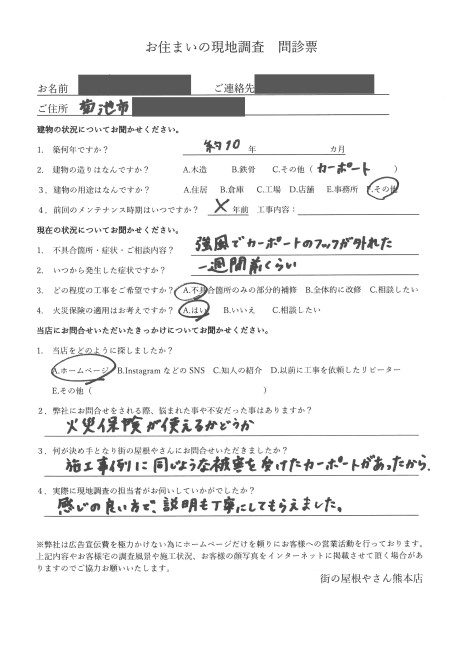 お住まいの現地調査　問診票
お名前　ご連絡先
ご住所　菊池市
建物の状況についてお聞かせください。
1．築何年ですか？　約10　年　カ月
2．建物の造りはなんですか？　A.木造　B.鉄骨　C.その他（カーポート　）
3．建物の用途はなんですか？　A.住居　B.倉庫　C.工場　D.店舗　E.事務所　F.その他
4．前回のメンテナンス時期はいつですか？　×　年前　工事内容：
現在の状況についてお聞かせください。
1．不具合箇所・症状・ご相談内容？　強風でカーポートのフックが外れた
2．いつから発生した症状ですか？　一週間前くらい
3．どの程度の工事をご希望ですか？　A.不具合箇所のみの部分的補修　B.全体的に改修　C.相談したい
4．火災保険の適用はお考えですか？　A.はい　B.いいえ　C.相談したい
当店にお問合せいただいたきっかけについてお聞かせください。
1．当店をどのように探しましたか？
A.ホームページ　B.Instagram などの SNS　C.知人の紹介　D.以前に工事を依頼したリピーター
E.その他（　）
2．弊社にお問合せをされる際、悩まれた事や不安だった事はありますか？
火災保険が使えるかどうか
3．何が決め手となり街の屋根やさんにお問合せいただきましたか？
施工事例に同じような被害を受けたカーポートがあったから.
4．実際に現地調査の担当者がお伺いしていかがでしたか？
感じの良い方で、説明も丁寧にしてもらえました。
※弊社は広告宣伝費を極力かけない為にホームページだけを頼りにお客様への営業活動を行っております。
上記内容やお客様宅の調査風景や施工状況、お客様の顔写真をインターネットに掲載させて頂く場合があ
りますのでご協力お願いいたします。
街の屋根やさん熊本店